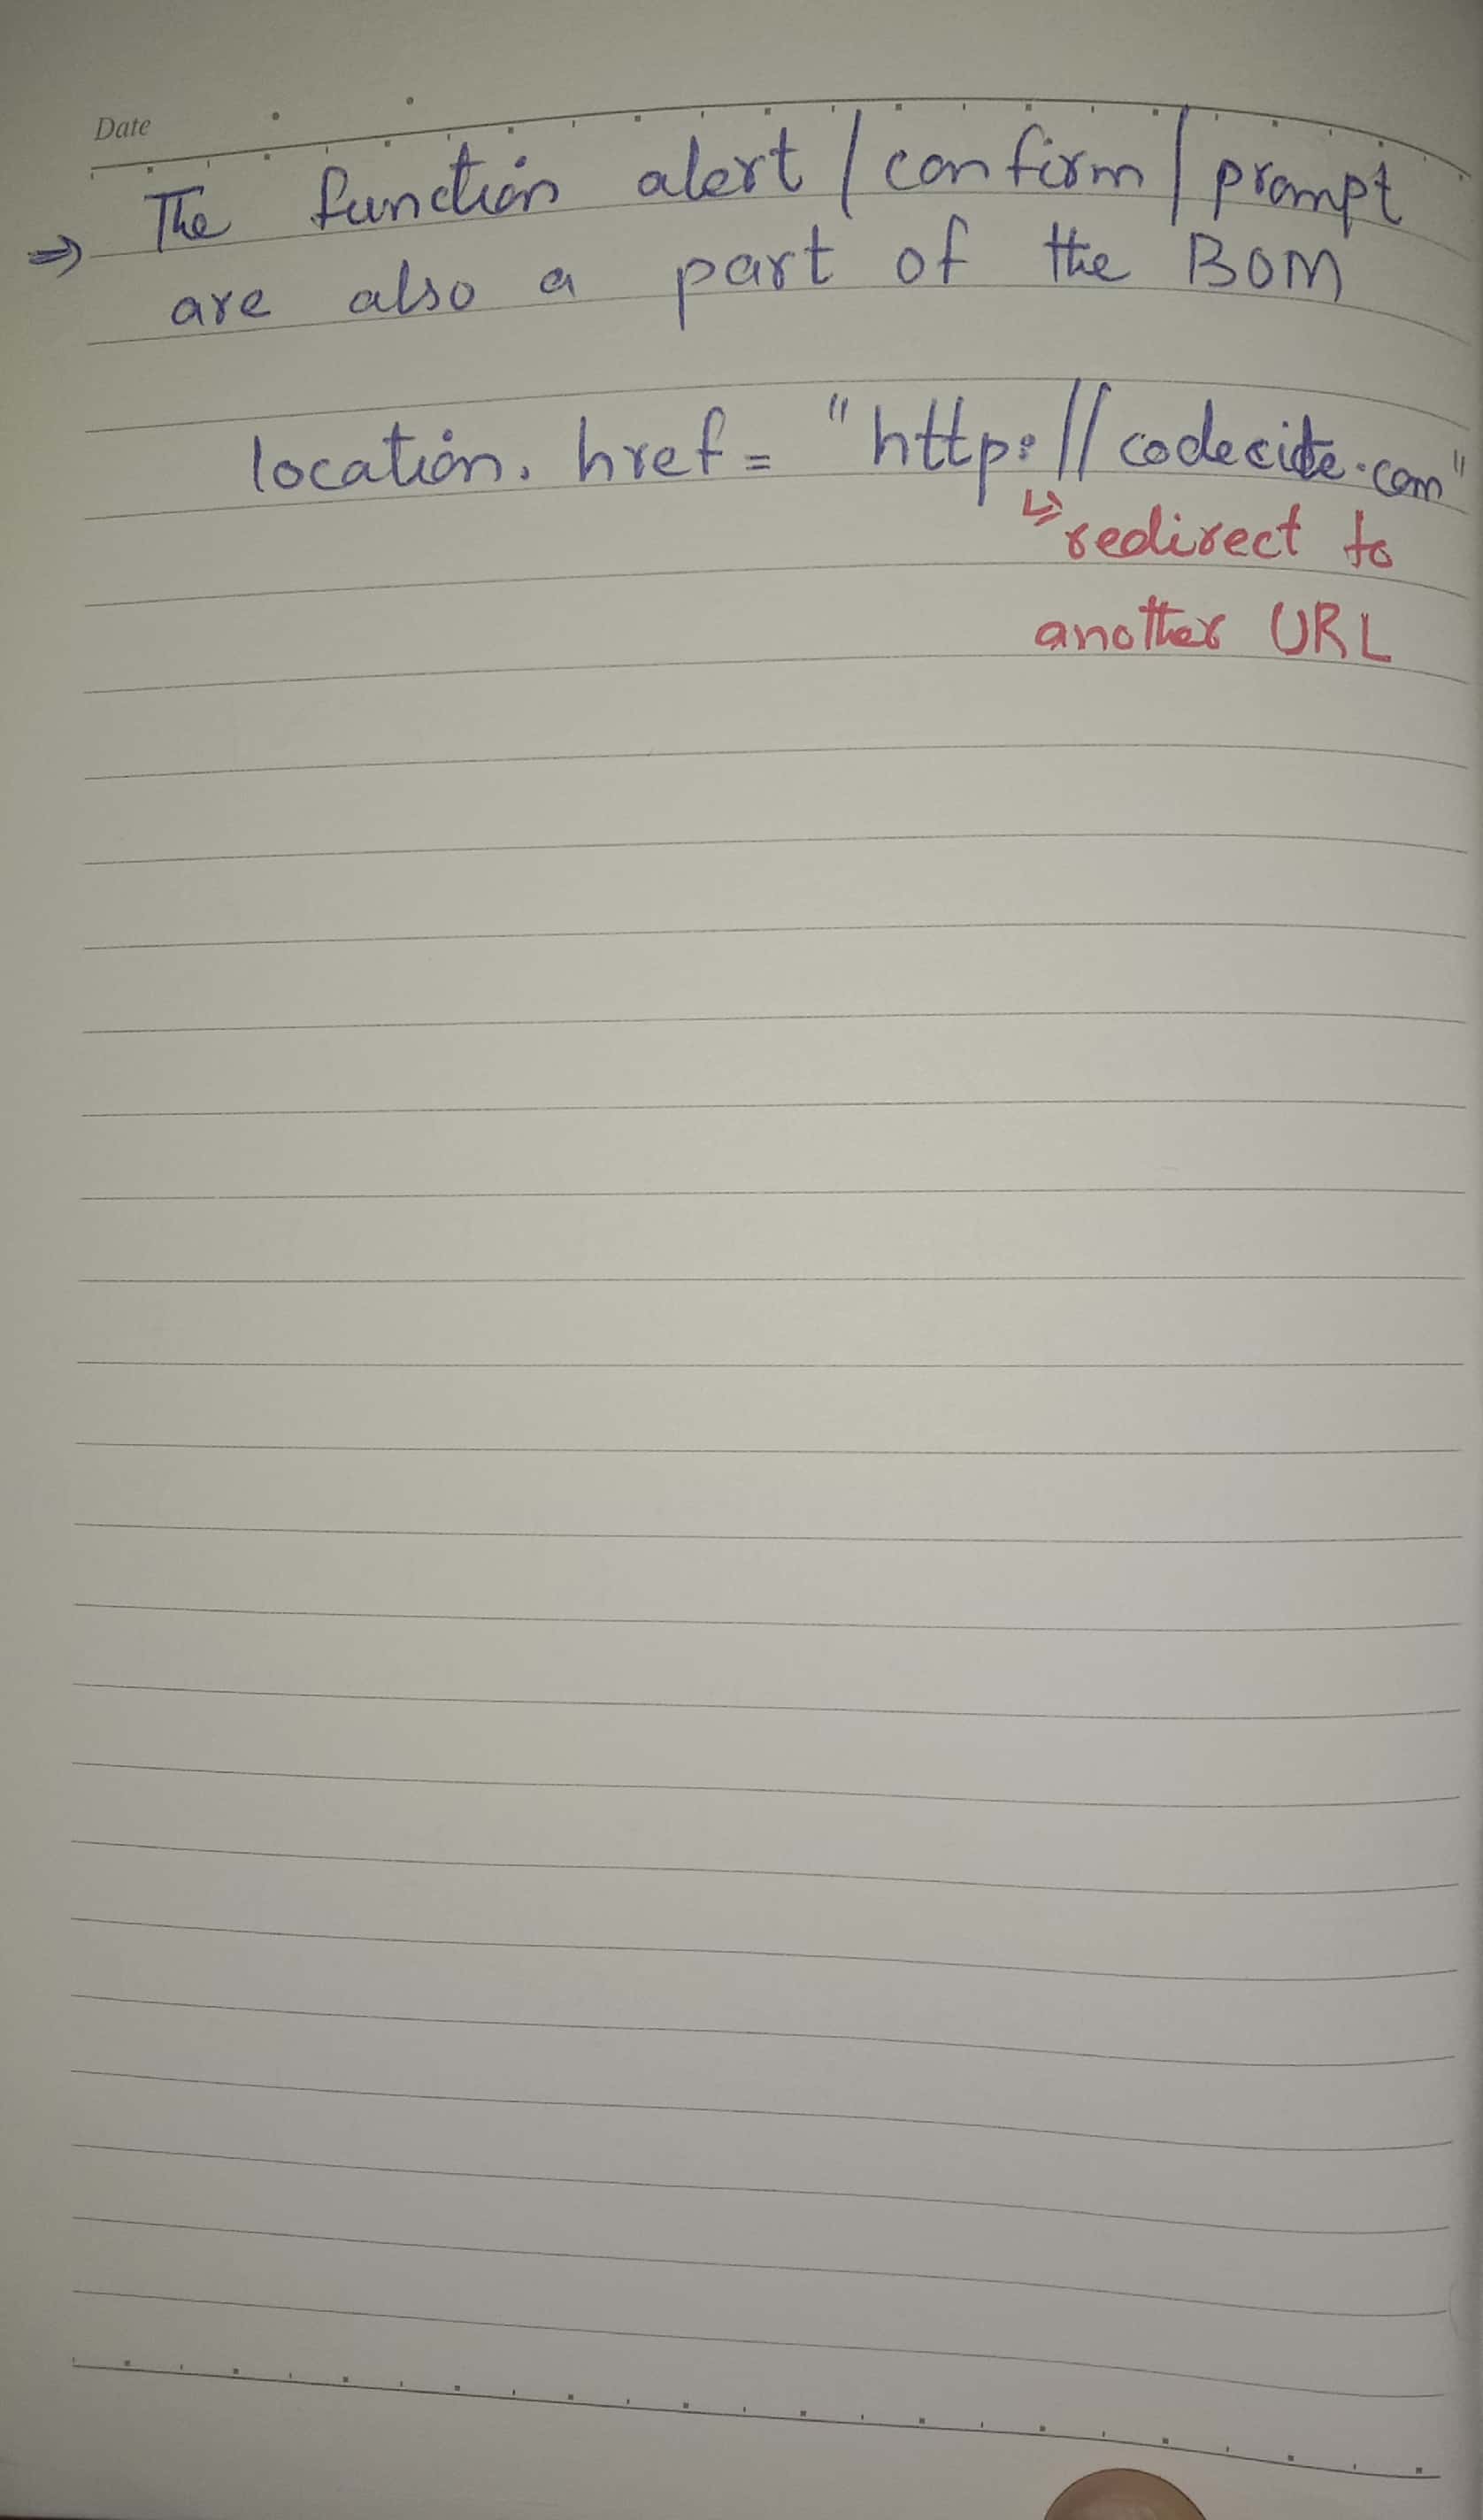 Date
⇒ The function alert / confirm / prompt
are also a part of the BOM
location. href = "http://codecite.com"
↳ redirect to
another URL